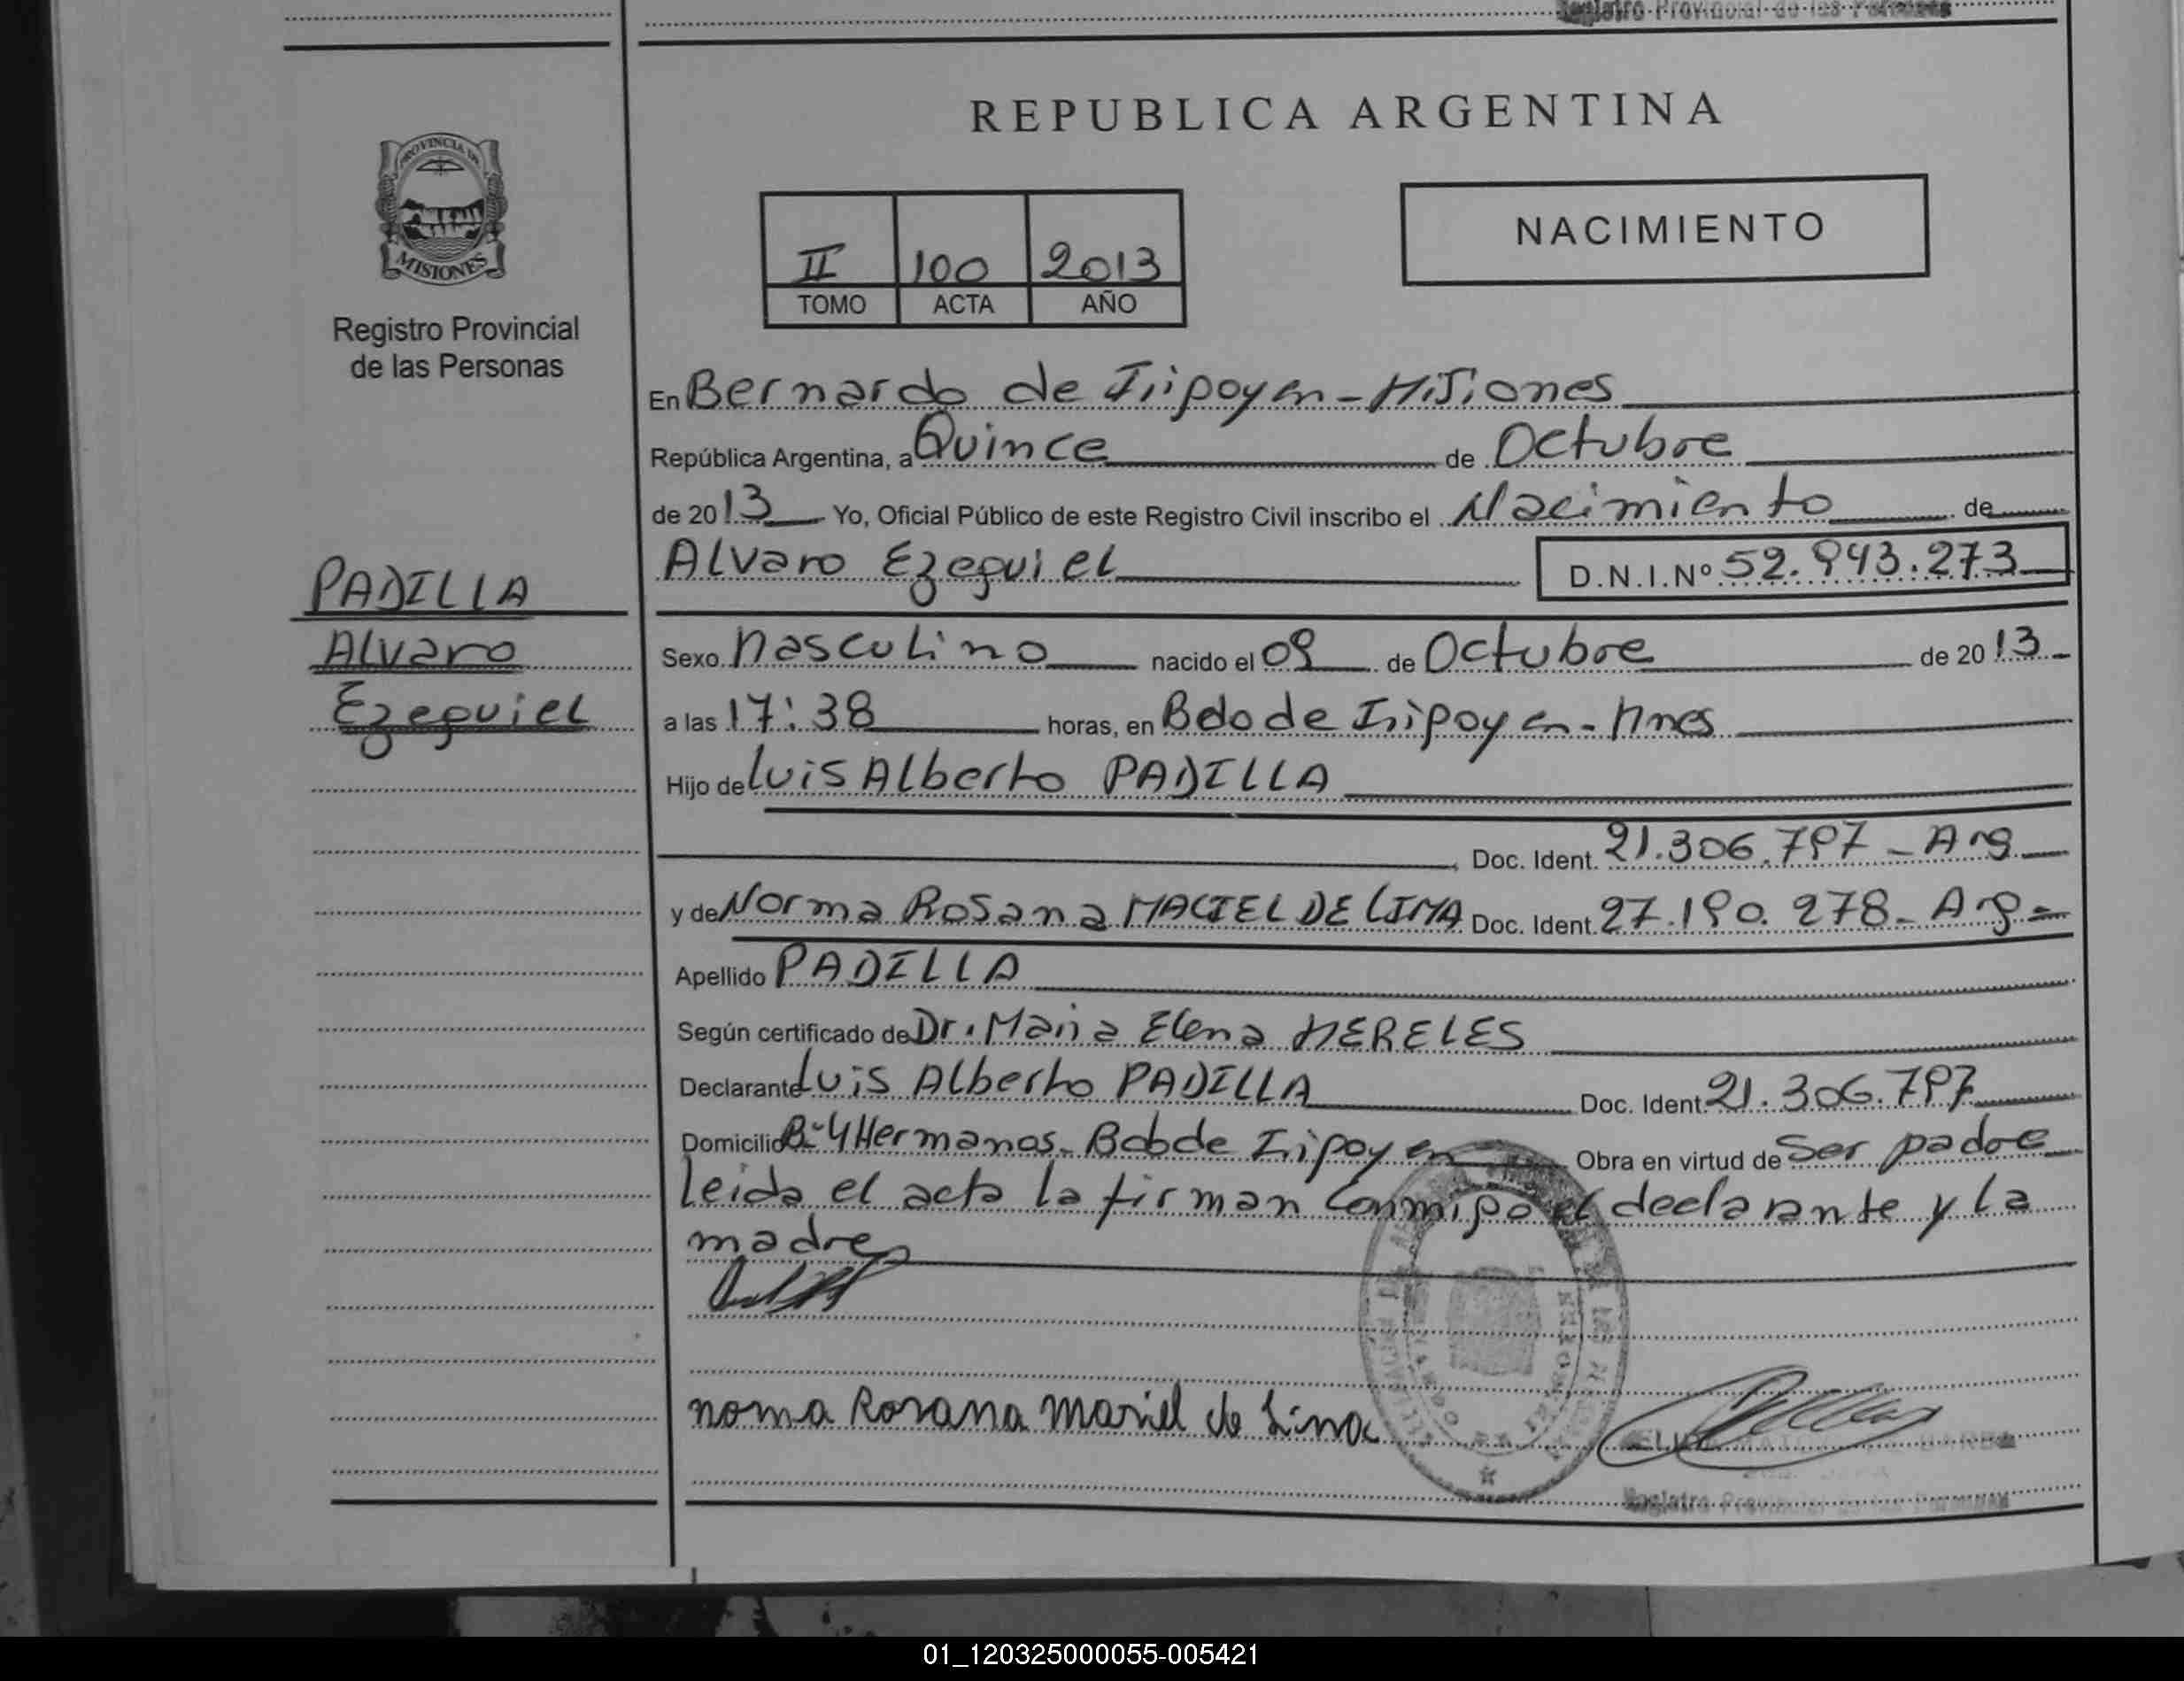 Registro Provincial de las Personas
REPUBLICA ARGENTINA
PROVINCIA DE
MISIONES
Registro Provincial
de las Personas
II 100 2013
TOMO ACTA AÑO
NACIMIENTO
En Bernardo de Irigoyen - Misiones
República Argentina, a Quince de Octubre
de 2013 Yo, Oficial Público de este Registro Civil inscribo el Nacimiento de
Alvaro Ezequiel D.N.I.Nº 52.943.273
PADILLA
Alvaro
Ezequiel
Sexo Masculino nacido el 09 de Octubre de 2013
a las 17:38 horas, en Bdo de Irigoyen - Mnes
Hijo de Luis Alberto PADILLA
Doc. Ident. 21.306.797 - Arg
y de Norma Rosana MACIEL DE LIMA Doc. Ident. 27.190.278 - Arg -
Apellido PADILLA
Según certificado de Dr. Maria Elena MERELES
Declarante Luis Alberto PADILLA Doc. Ident. 21.306.797
Domicilio Bº 4 Hermanos - Bdo de Irigoyen Obra en virtud de Ser padre
leida el acta la firman conmigo el declarante y la
madre
noma Rosana maciel de Lima
Registro Provincial de las Personas
01_120325000055-005421